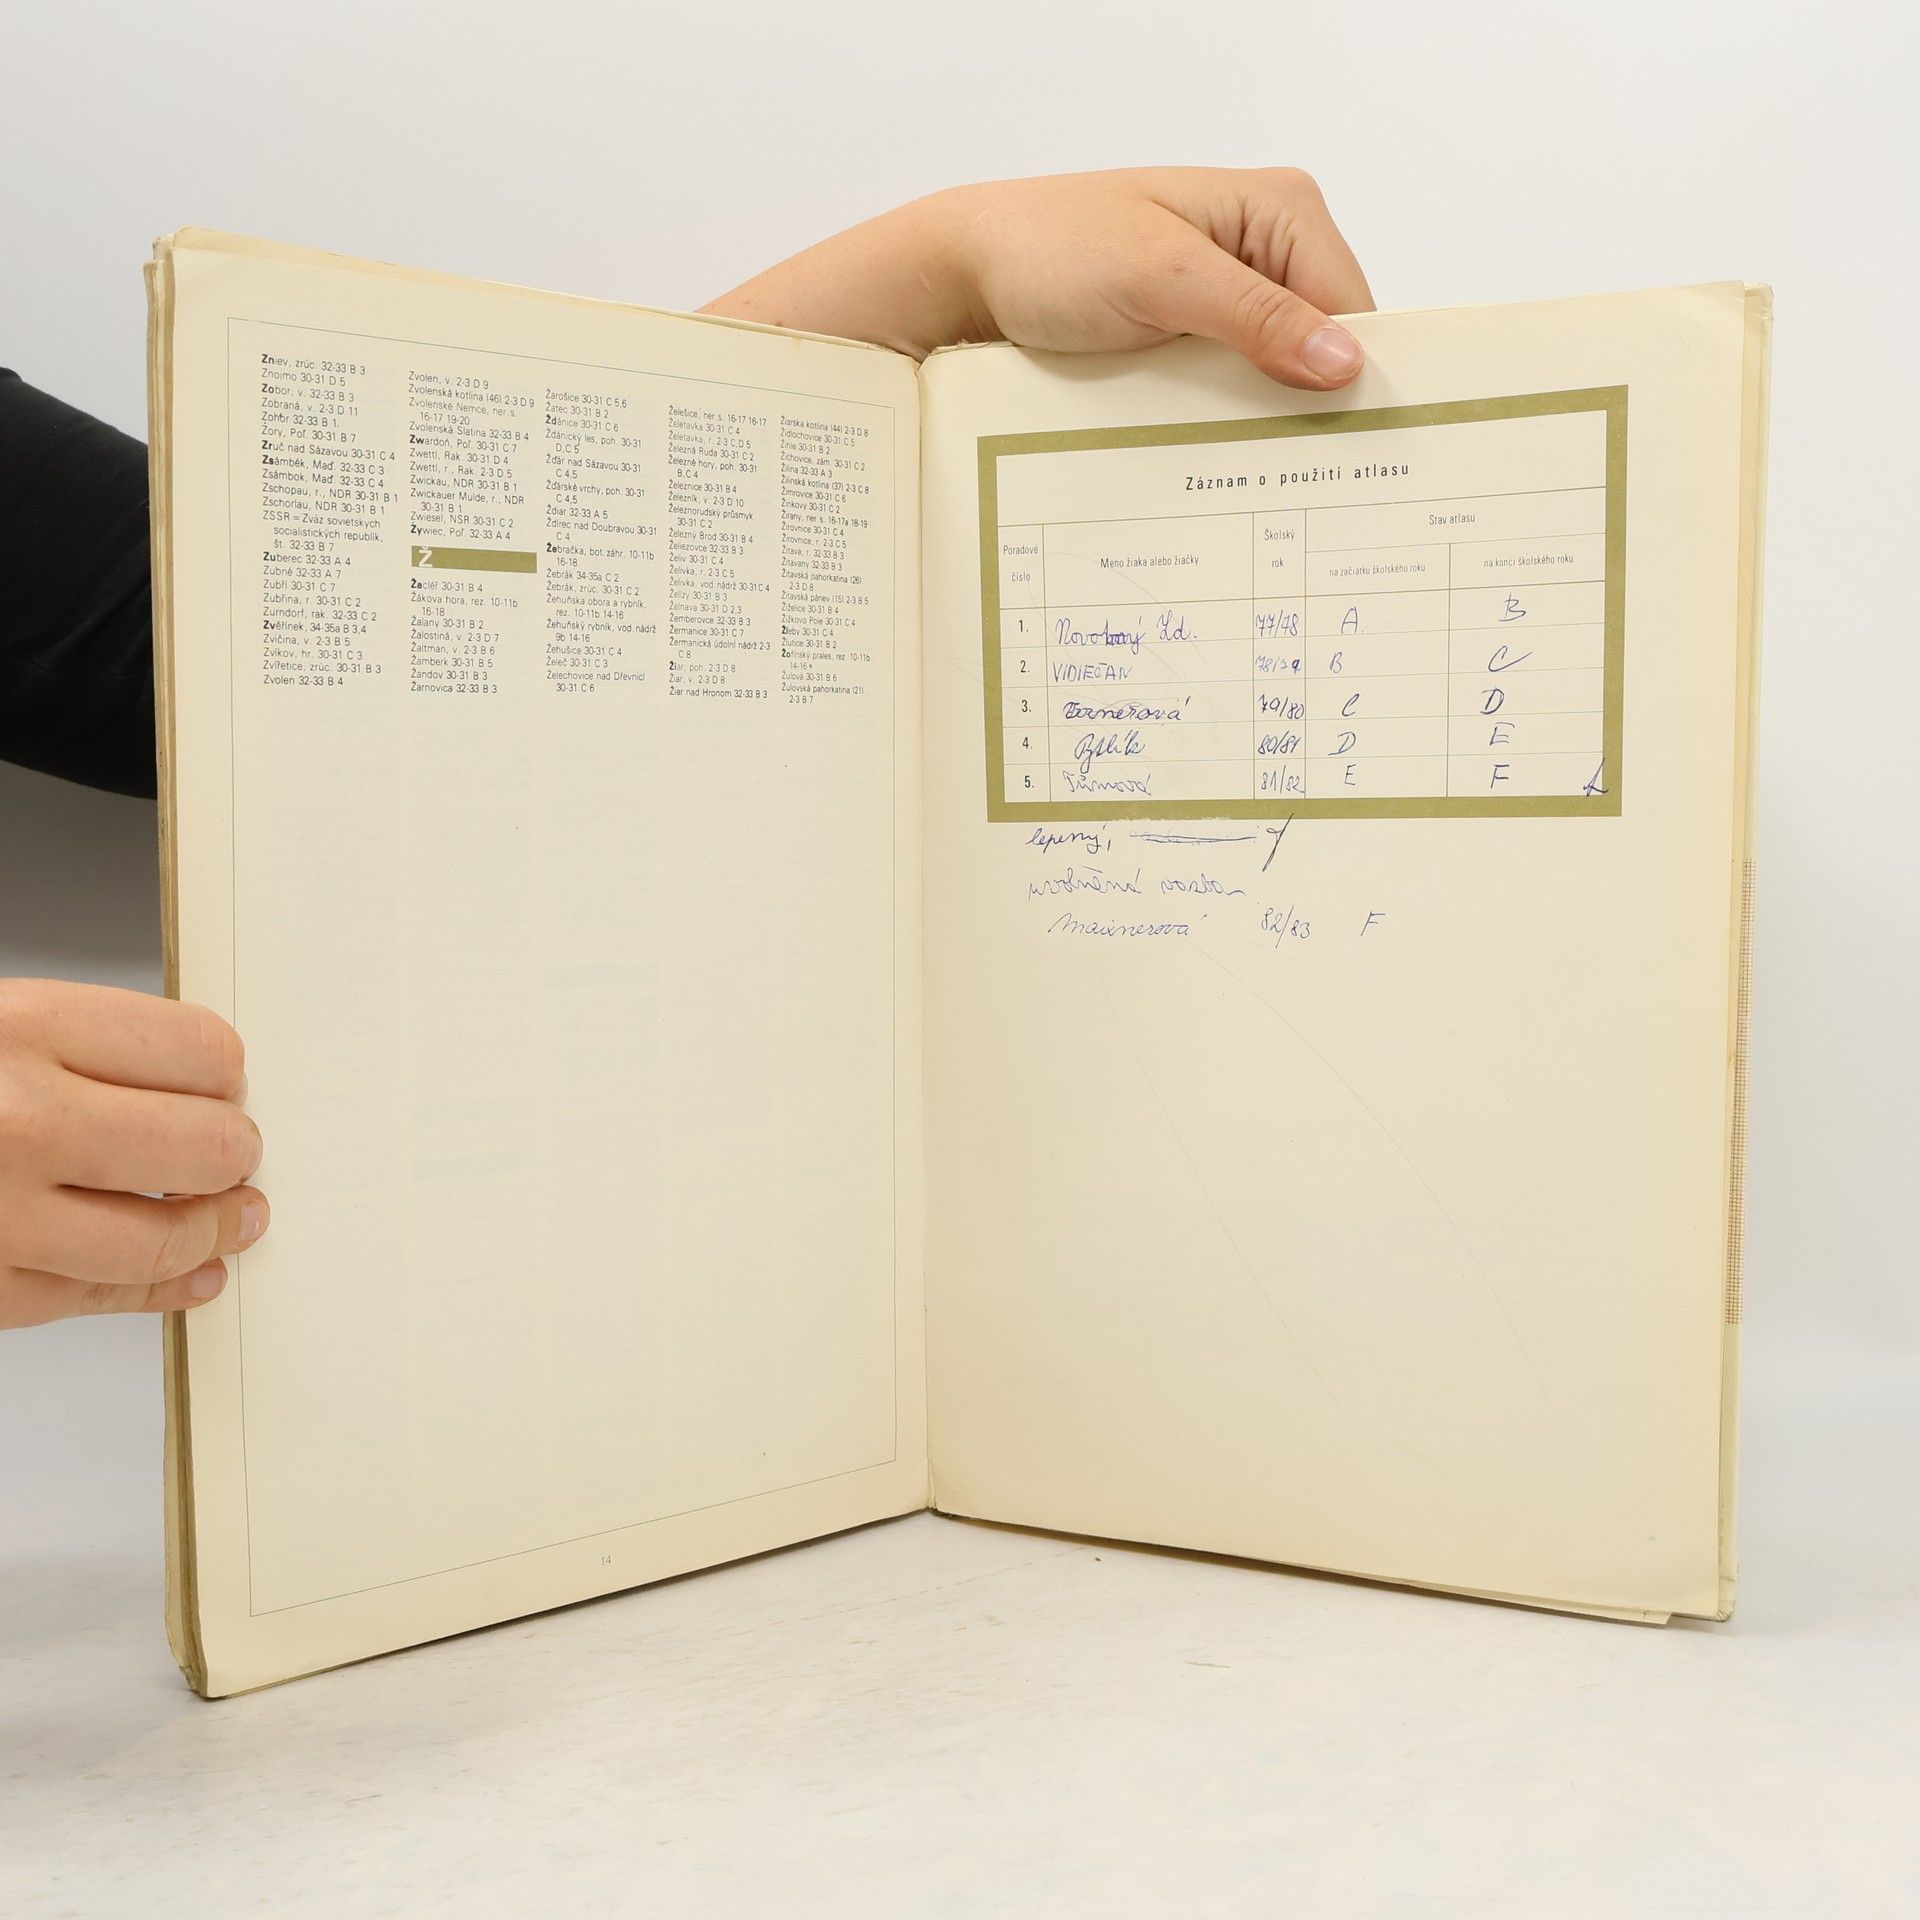 Zniev, zrúc. 32-33 B 3
Znojmo 30-31 D 5
Zobor, v. 32-33 B 3
Zobraná, v. 2-3 D 11
Zohor 32-33 B 1.
Żory, Poľ. 30-31 B 7
Zruč nad Sázavou 30-31 C 4
Zsámbék, Maď. 32-33 C 3
Zsámbok, Maď. 32-33 C 4
Zschopau, r., NDR 30-31 B 1
Zschorlau, NDR 30-31 B 1
ZSSR = Zväz sovietskych
socialistických republík,
št. 32-33 B 7
Zuberec 32-33 A 4
Zubné 32-33 A 7
Zubří 30-31 C 7
Zubřina, r. 30-31 C 2
Zurndorf, rak. 32-33 C 2
Zvěřínek, 34-35a B 3,4
Zvičina, v. 2-3 B 5
Zvíkov, hr. 30-31 C 3
Zvířetice, zrúc. 30-31 B 3
Zvolen 32-33 B 4
Zvolen, v. 2-3 D 9
Zvolenská kotlina (46) 2-3 D 9
Zvolenské Nemce, ner. s.
16-17 19-20
Zvolenská Slatina 32-33 B 4
Zwardoń, Poľ. 30-31 C 7
Zwettl, Rak. 30-31 D 4
Zwettl, r., Rak. 2-3 D 5
Zwickau, NDR 30-31 B 1
Zwickauer Mulde, r., NDR
30-31 B 1
Zwiesel, NSR 30-31 C 2
Żywiec, Poľ. 32-33 A 4
Ž
Žacléř 30-31 B 4
Žákova hora, rez. 10-11b
16-18
Žalany 30-31 B 2
Žalostiná, v. 2-3 D 7
Žaltman, v. 2-3 B 6
Žamberk 30-31 B 5
Žandov 30-31 B 3
Žarnovica 32-33 B 3
Žarošice 30-31 C 5,6
Žatec 30-31 B 2
Ždánice 30-31 C 6
Ždánický les, poh. 30-31
D,C 5
Žďár nad Sázavou 30-31
C 4,5
Žďárské vrchy, poh. 30-31
C 4,5
Ždiar 32-33 A 5
Ždírec nad Doubravou 30-31
C 4
Žebračka, bot. záhr. 10-11b
16-18
Žebrák 34-35a C 2
Žebrák, zrúc. 30-31 C 2
Žehuňska obora a rybník,
rez. 10-11b 14-16
Žehuňský rybník, vod. nádrž
9b 14-16
Žehušice 30-31 C 4
Želeč 30-31 C 3
Želechovice nad Dřevnicí
30-31 C 6
Želešice, ner s. 16-17 16-17
Želetavka 30-31 C 4
Želetavka, r. 2-3 C,D 5
Železná Ruda 30-31 C 2
Železné hory, poh. 30-31
B,C 4
Železnice 30-31 B 4
Železník, v. 2-3 D 10
Železnorudský průsmyk
30-31 C 2
Železný Brod 30-31 B 4
Želiezovce 32-33 B 3
Želiv 30-31 C 4
Želivka, r. 2-3 C 5
Želivka, vod. nádrž 30-31 C 4
Želízy 30-31 B 3
Želnava 30-31 D 2,3
Žemberovce 32-33 B 3
Žermanice 30-31 C 7
Žermanická údolní nádrž 2-3
C 8
Žiar, poh. 2-3 D 8
Žiar, v. 2-3 D 8
Žiar nad Hronom 32-33 B 3
Žiarska kotlina (44) 2-3 D 8
Židlochovice 30-31 C 5
Žihle 30-31 B 2
Žichovice, zám. 30-31 C 2
Žilina 32-33 A 3
Žilinská kotlina (37) 2-3 C 8
Žimrovice 30-31 C 6
Žinkovy 30-31 C 2
Žirany, ner. s. 16-17a 18-19
Žirovnice 30-31 C 4
Žirovnice, r. 2-3 C 5
Žitava, r. 32-33 B 3
Žitavany 32-33 B 3
Žitavská pahorkatina (26)
2-3 D 8
Žitavská pánev (15) 2-3 B 5
Žiželice 30-31 B 4
Žižkovo Pole 30-31 C 4
Žleby 30-31 C 4
Žlutice 30-31 B 2
Žofínský prales, rez. 10-11b
14-16
Žulová 30-31 B 6
Žulovská pahorkatina (21)
2-3 B 7
14
Záznam o použití atlasu
Poradové číslo Meno žiaka alebo žiačky Školský rok Stav atlasu
na začiatku školského roku na konci školského roku
1. Novotný Zd. 77/78 A. B
2. VIDIEČAN 78/79 B C
3. 79/80 C D
4. Pytlík 80/81 D E
5. Tůmová 81/82 E F
lepený,
uvolněná vazba
Maixnerová 82/83 F